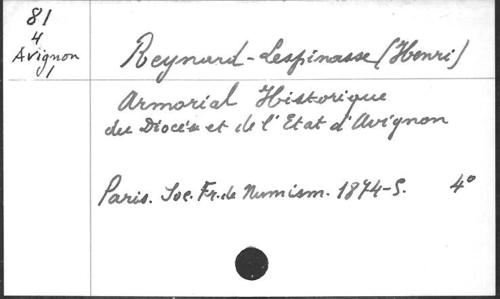 81
4
Avignon
1
Reynard-Lespinasse (Henri)
Armorial Historique
du Diocèse et de l'Etat d'Avignon
Paris. Soc. Fr. de Numism. 1874-5. 4°